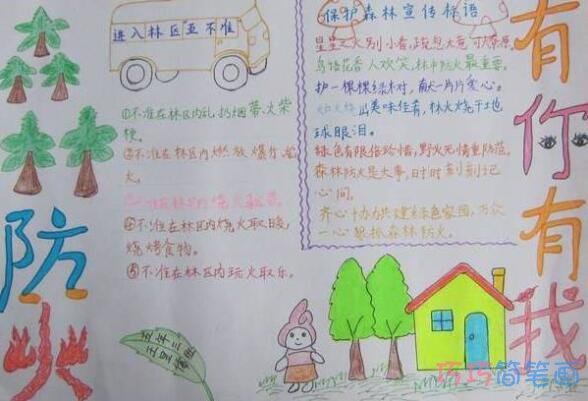 进入林区五不准
①不准在林区内乱扔烟蒂、火柴
梗。
②不准在林区内燃放爆竹、
火。
④不准在林区内烧火取暖,
烧烤食物。
⑤不准在林区内玩火取乐。
保护森林宣传标语
星星之火别小看,
鸟语花香人欢笑,林中防火最重要。
护一棵棵绿树,献一片片爱心。
球眼泪。
绿色有限倍珍惜,野火无情重防范。
森林防火是大事,时时刻刻记
心间。
齐心协力共建绿色家园,万众
一心狠抓森林防火。
防火
有你有我
五年三班
巧巧简笔画